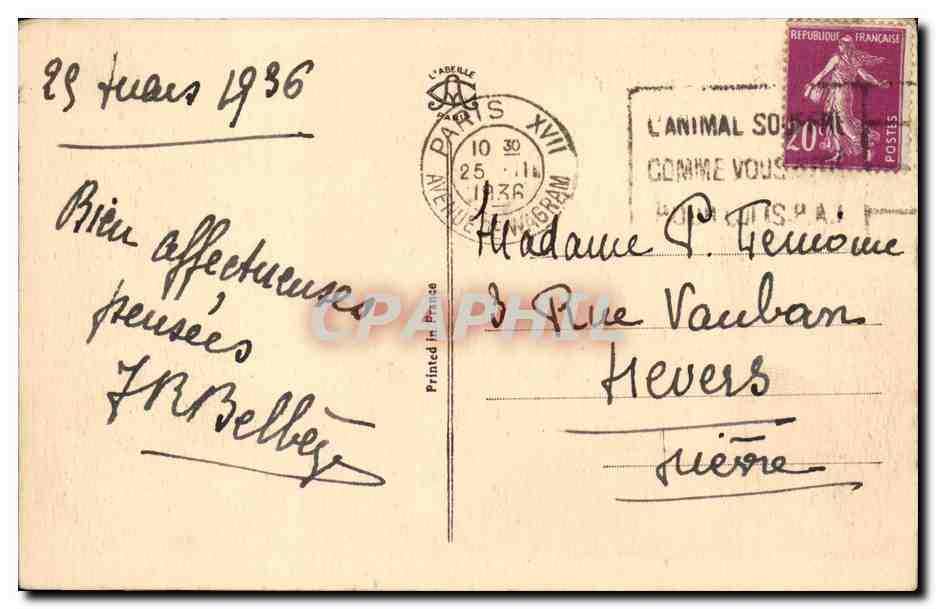 25 mars 1936
Bien affectueuses
pensées
L'ABEILLE
PARIS
PARIS XVII
10 30
25 III
1936
AVENUE DE WAGRAM
L'ANIMAL SOUFFRE
COMME VOUS
REPUBLIQUE FRANÇAISE
20c
POSTES
Printed in France
CPAPHIL
Madame P.
3 Rue Vauban
Nevers
Nièvre